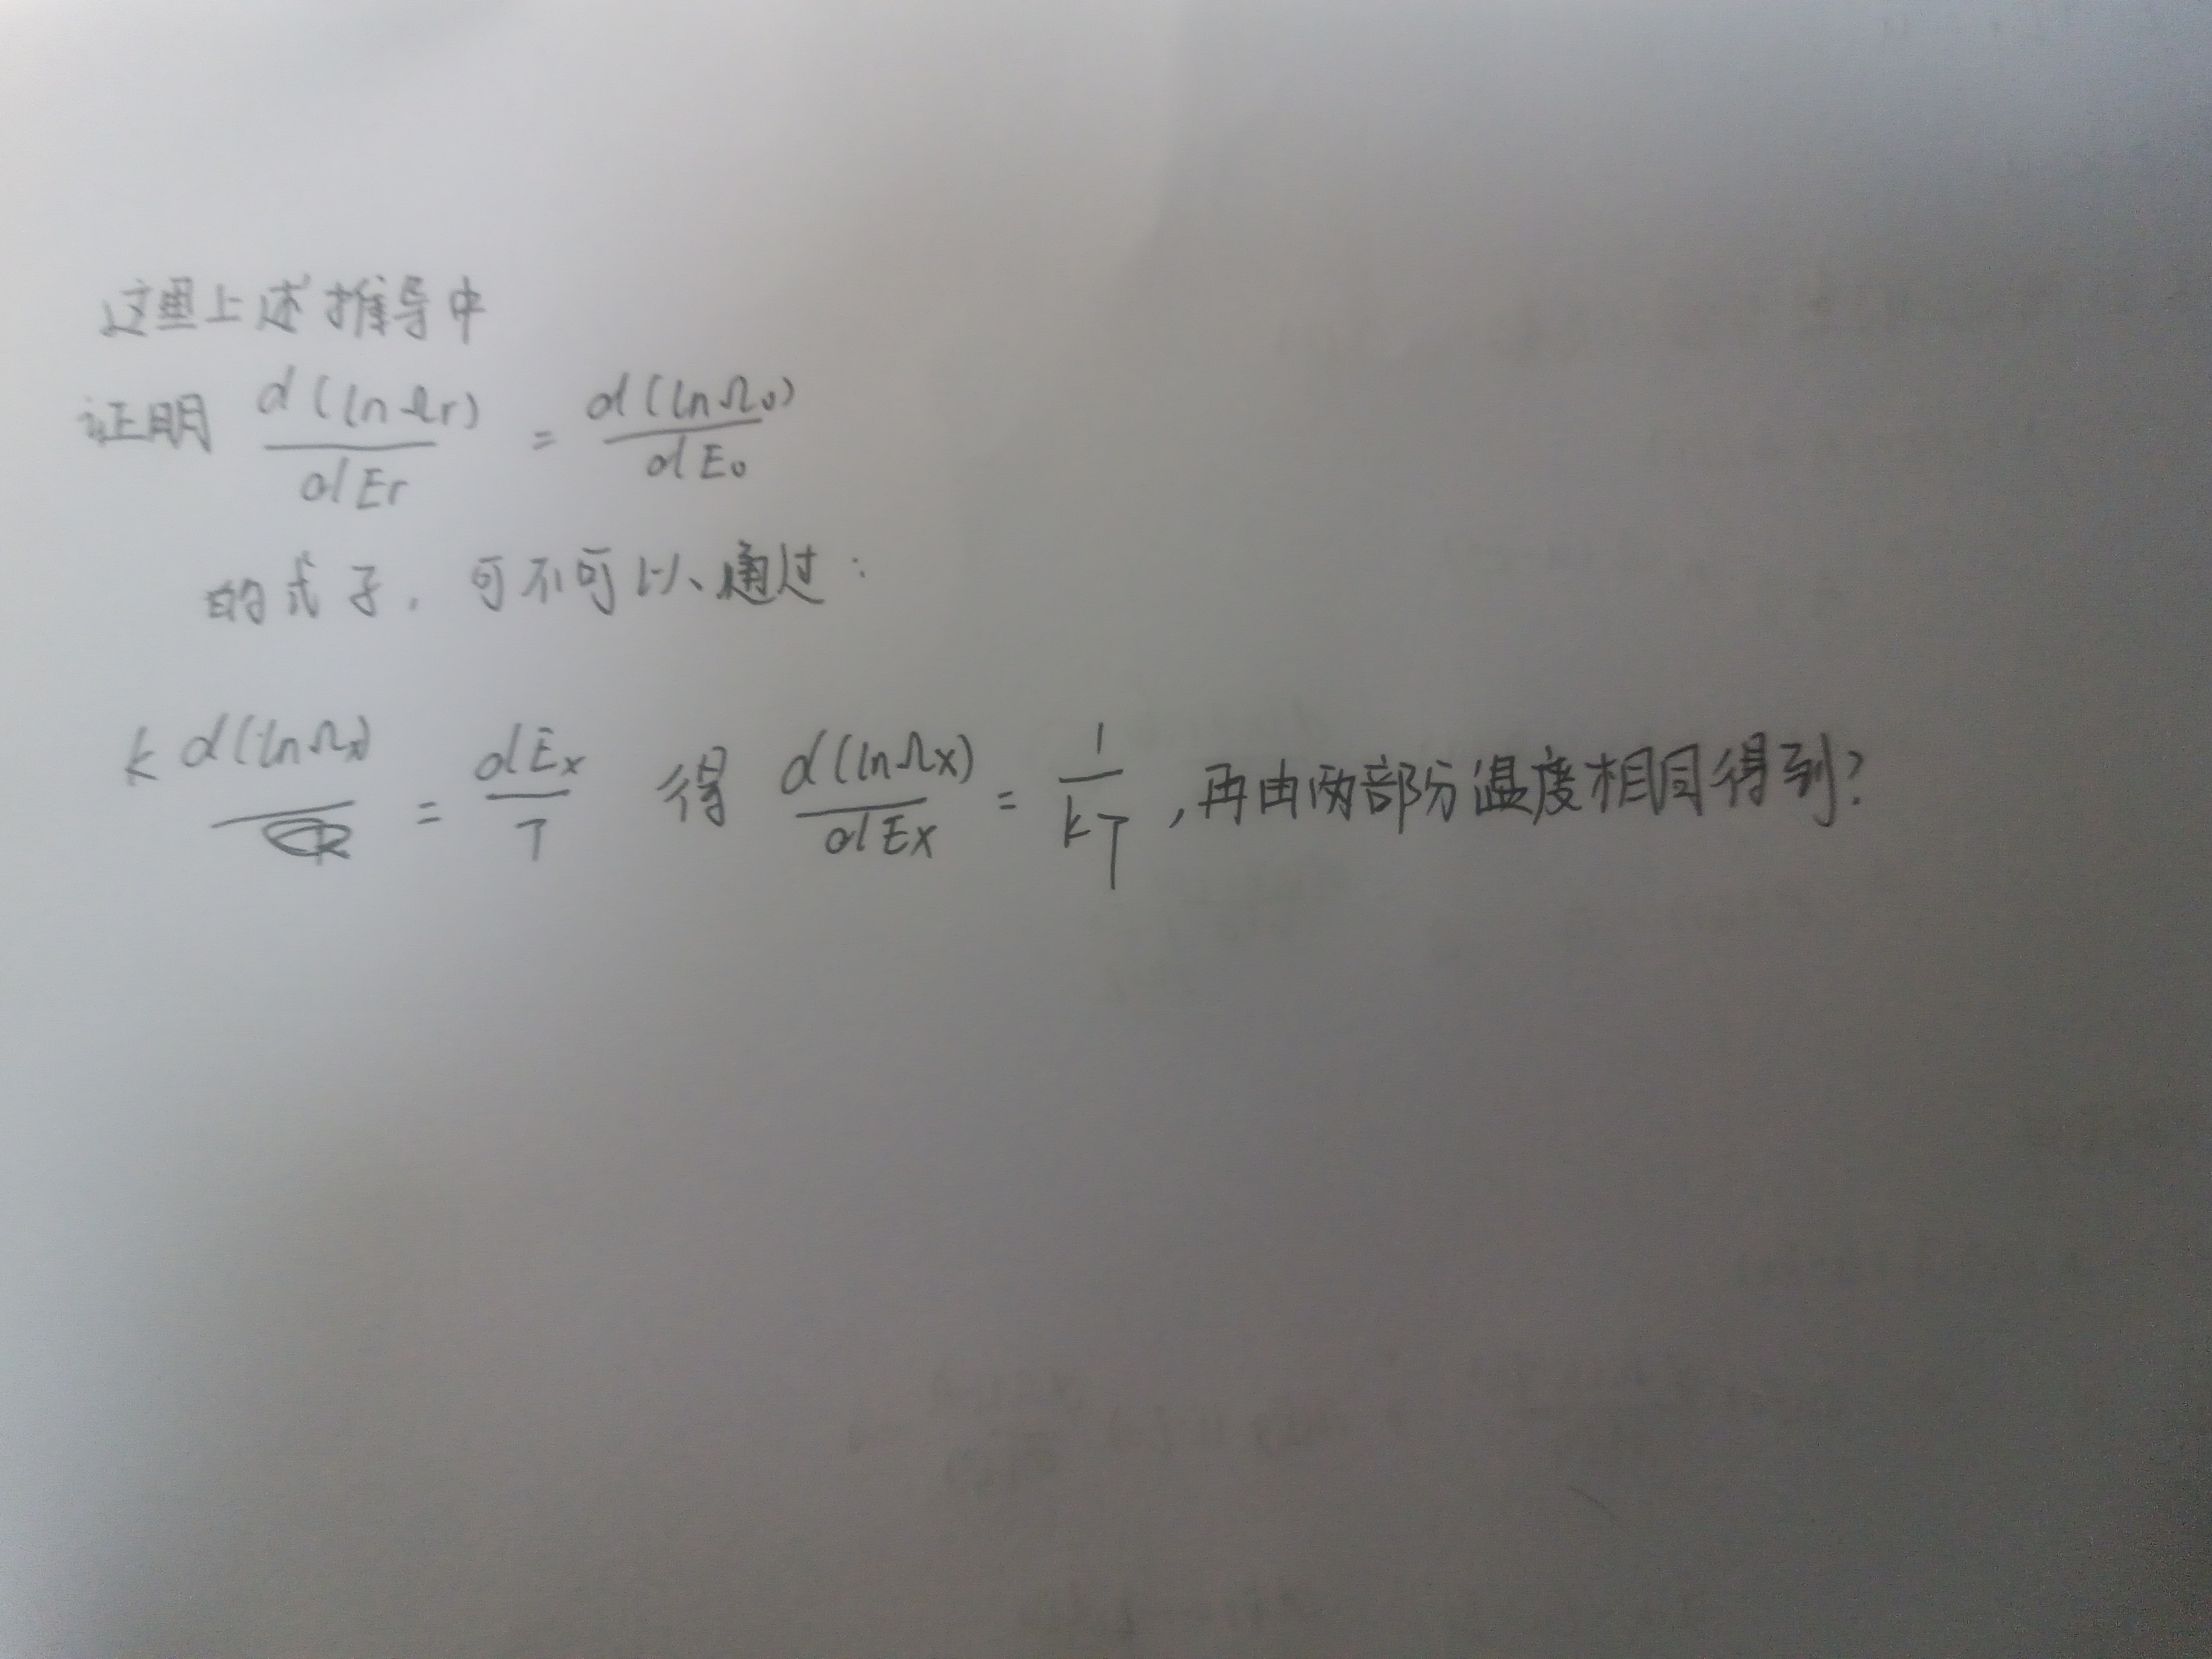 这里上述推导中
证明 d(lnΩr)/dEr = d(lnΩ0)/dE0
的式子,可不可以通过:
k d(lnΩx) = dEx/T 得 d(lnΩx)/dEx = 1/kT ,再由两部分温度相同得到?